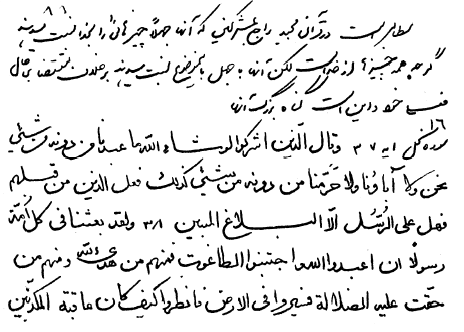 مطالبی است در قرآن مجید راجع بمشرکین که آنها خیلی چیزهائی را بخدا نسبت میدهند
گرچه همه چیزها از خداست لکن آنها به جهل یا بغیر موضوع نسبت میدهند برخلاف مقتضای حال
و این است گناه بزرگ آنها
سوره نحل آیه ۳۷ وقال الذین اشرکوا لوشاء الله ما عبدنا من دونه من شیئی
نحن ولا آباؤنا ولا حرّمنا من دونه من شیئی کذلک فعل الذین من قبلهم
فهل علی الرّسل الّا البلاغ المبین ۳۸ ولقد بعثنا فی کل امّة
رسولاً ان اعبدوا الله واجتنبوا الطاغوت فمنهم من هدی الله ومنهم من
حقّت علیه الضلالة فسیروا فی الارض فانظروا کیف کان عاقبة المکذّبین